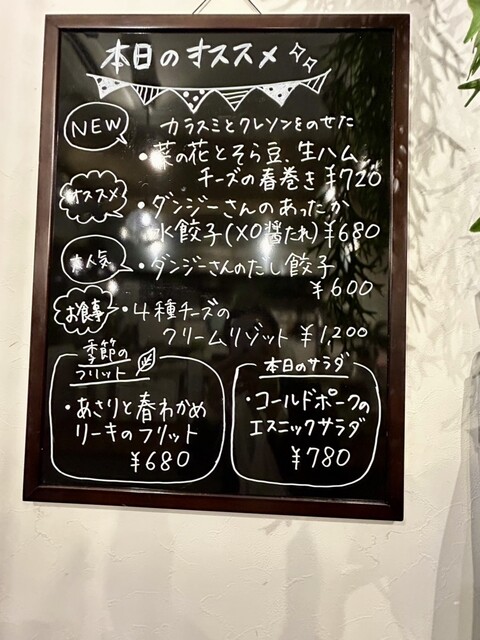 本日のオススメ
NEW
カラスミとクレソンをのせた
・菜の花とそら豆、生ハム
チーズの春巻き ¥720
オススメ
・ダンジーさんのあったか
水餃子(XO醤たれ) ¥680
大人気
・ダンジーさんのだし餃子
¥600
お食事
・4種チーズの
クリームリゾット ¥1,200
季節の
フリット
・あさりと春わかめ
リーキのフリット
¥680
本日のサラダ
・コールドポークの
エスニックサラダ
¥780